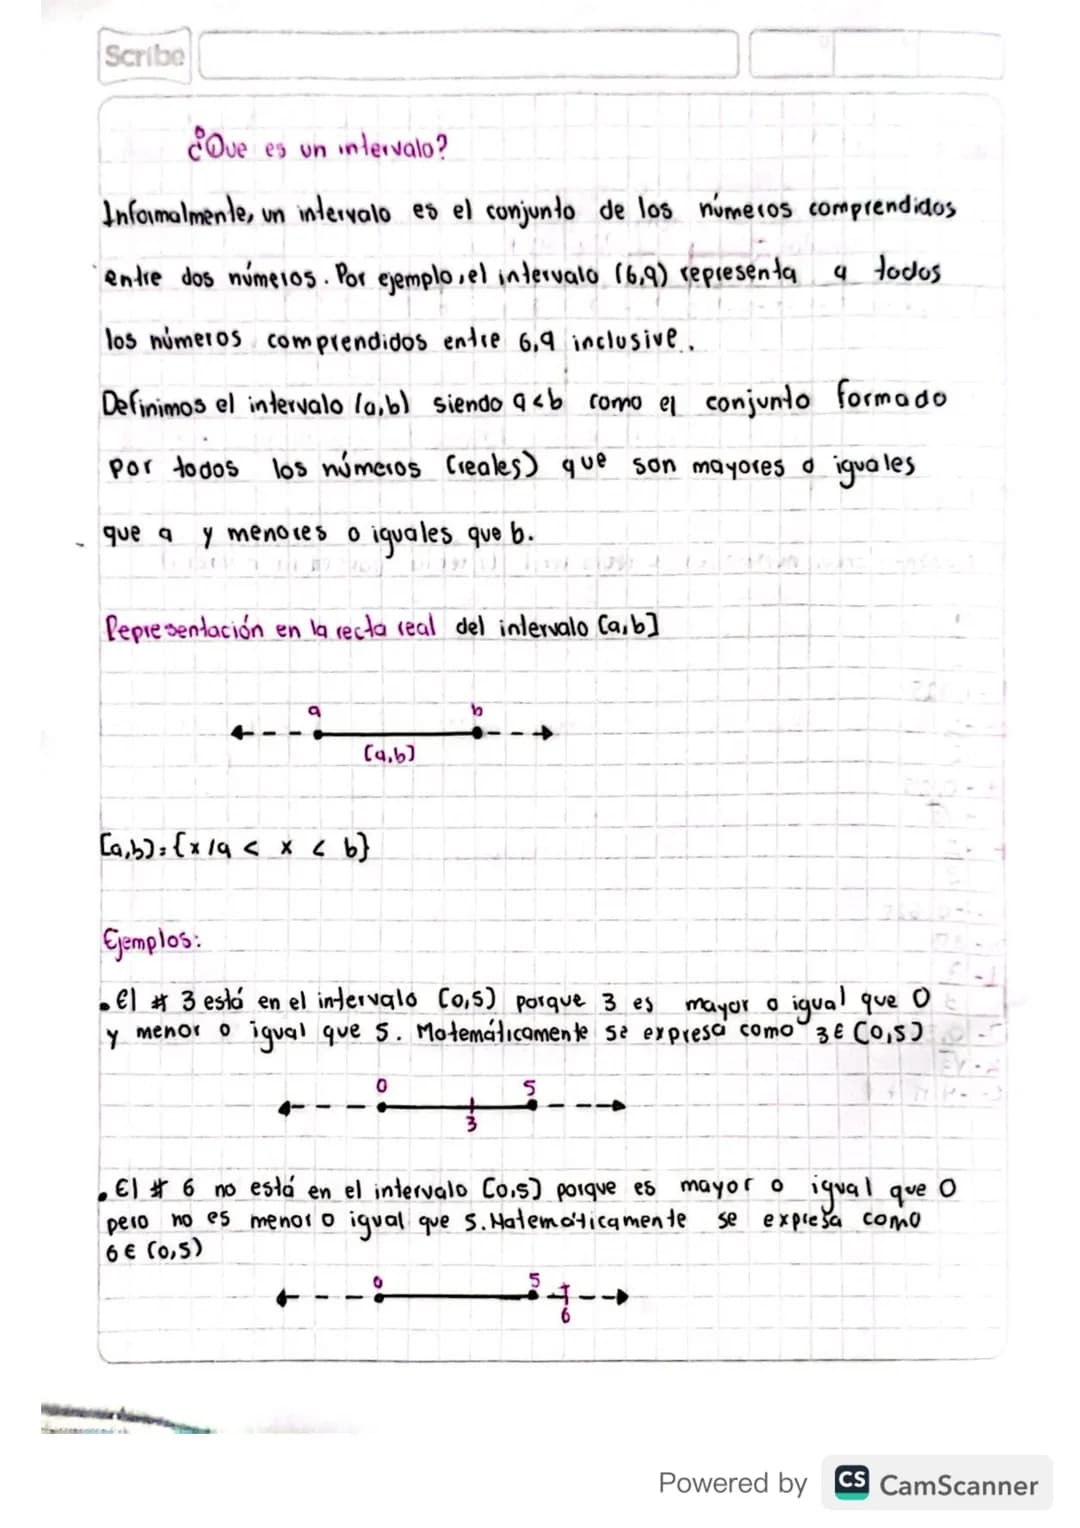 Scribe
¿Que es un intervalo?
Informalmente, un intervalo es el conjunto de los números comprendidos
entre dos números. Por ejemplo, el intervalo (6,9) representa a todos
los números comprendidos entre 6,9 inclusive.
Definimos el intervalo (a,b) siendo a<b como el conjunto formado
por todos los números (reales) que son mayores o iguales
que a y menores o iguales que b.
Representación en la recta real del intervalo [a,b]
a b
[a,b]
[a,b]={x/a < x < b}
Ejemplos:
• El # 3 está en el intervalo [0,5) porque 3 es mayor o igual que 0
y menor o igual que 5. Matemáticamente se expresa como 3∈[0,5)
0 5
3
• El # 6 no está en el intervalo [0,5) porque es mayor o igual que 0
pero no es menor o igual que 5. Matemáticamente se expresa como
6∈(0,5)
0 5
6
Powered by CS CamScanner